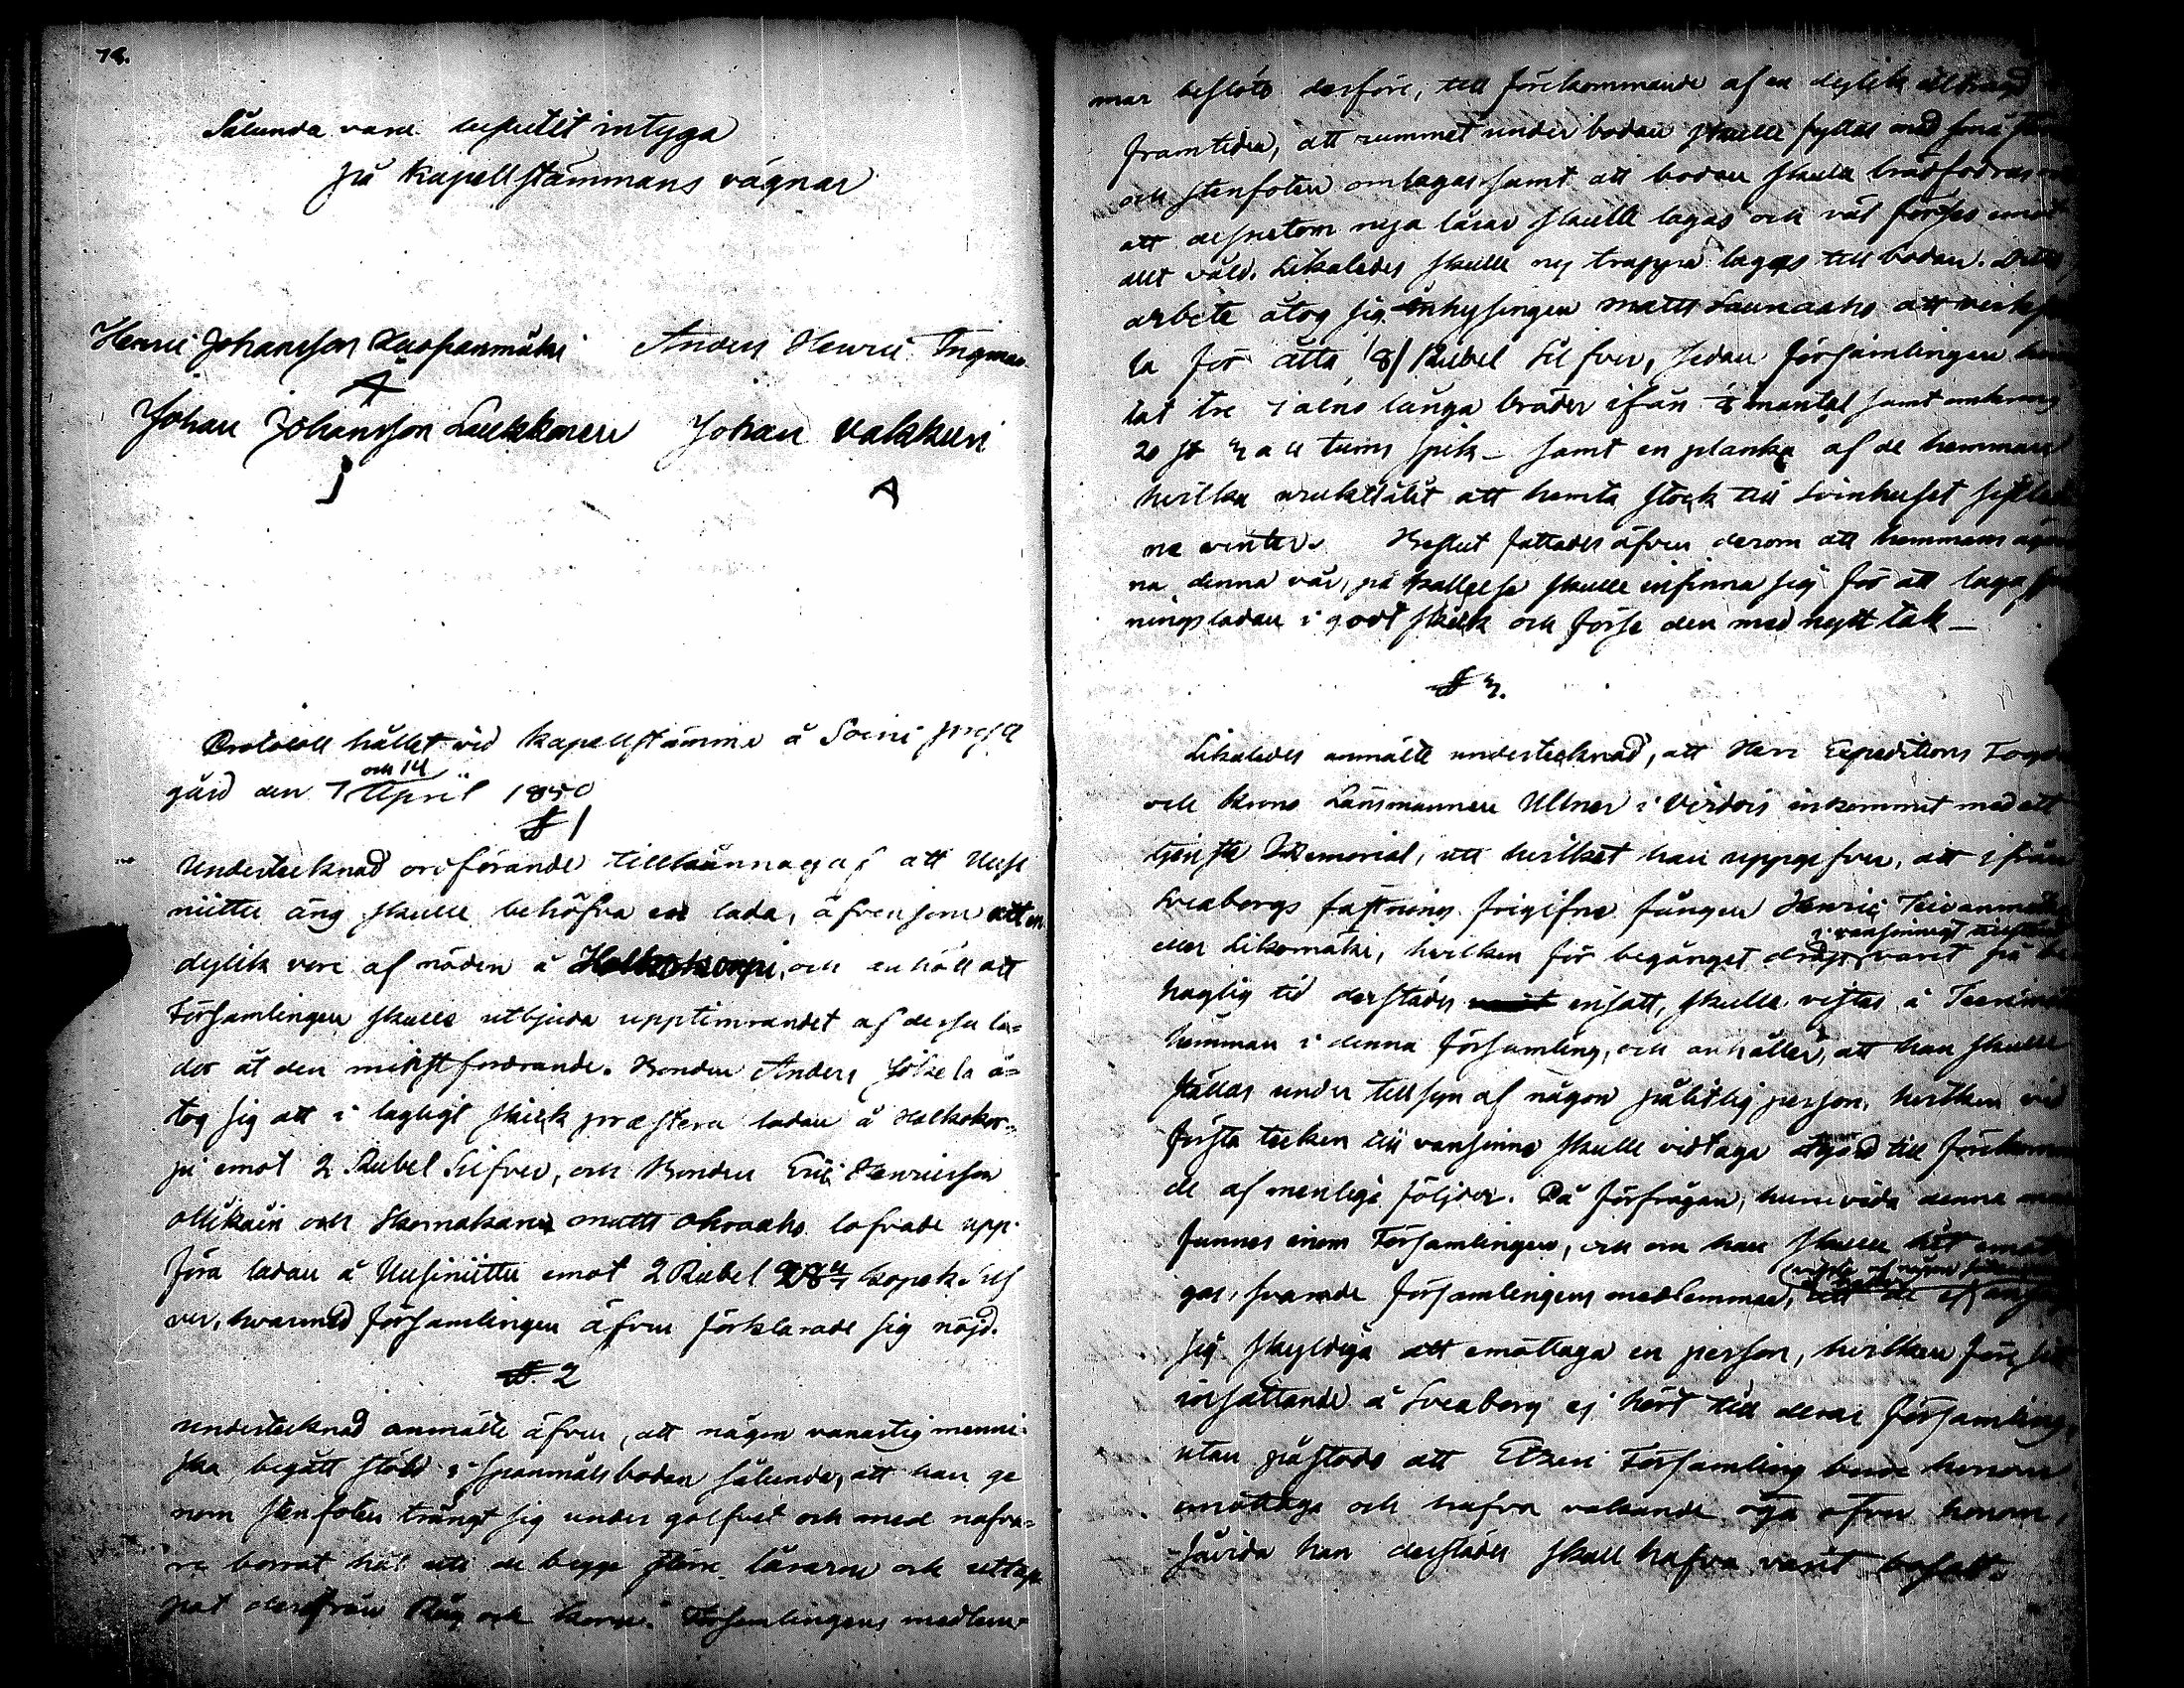 74.
Sålunda vara beslutit intyga
på Kapellstämmans vägnar
Henric Johansson Kuoppanmäki Anders Henric Ingman
Johan Johansson Laukkonen Johan Vakkuri
Protocoll hållet vid Kapellstämma å Soini prest
gård den 7 och 14 April 1850
§ 1
Undertecknad ordförande tillkännagaf att Uusi
niittu äng skulle behöfva en lada, äfvensom att en
dylik vore af nöden å Halkokorpi, och anhöll att
Församlingen skulle utbjuda upptimrandet af dessa la=
dor åt den minstfordrande. Bonden Anders Jokela å=
tog sig att i lagligt skick præstera ladan å Halkokor=
pi emot 2 Rubel Silfver, och Bonden Eric Henricsson
Ollikain och Skomakaren Matts Ahoaho lofvade upp=
föra ladan å Uusiniittu emot 2 Rubel 28 4/7 kopek Silf
ver, hvarmed Församlingen äfven förklarade sig nöjd.
§. 2
Undertecknad anmälte äfven, att någon vanartig menni=
ska begått stöld i Spanmålsboden sålunda, att han ge
nom stenfoten trängt sig under golfvet och med nafva=
re borrat hål uti de begge större lårarne och uttap
pat derifrån Råg och korn. Församlingens medlem=
mar beslöto derföre, till förekommande af en dylik tilldragelse
framtiden, att rummet under bodan skulle fyllas med små
och stenfoten omlagas samt att bodan skulle brädfodras
att dessutom nya lårar skulle lagas och väl förses emot
allt våld. Likaledes skulle ny trappa lagas till bodan. Detta
arbete åtog sig Inhysingen Matts Launaaho att verkstäl
la för åtta /8/ Rubel Silfver, sedan Församlingen hem
tat tre 7 alns långa bräder ifrån 1/8 mantal samt omkring
20 st 3 a 4 tums spik – samt en planka af de hemman
hvilka uraktlåtit att hemta stock till Svinhuset sistled
ne vinter. Beslut fattades äfven derom att hemmans ägar
na denna vår, på kallelse skulle infinna sig för att laga
ningsladan i godt skick och förse den med nytt tak –
§ 3.
Likaledes anmälte undertecknad, att Herr Expeditions Fogden
och Krono Länsmannen Ullner i Virdois inkommit med ett
tjenste Memorial, uti hvilket han uppgifver, att ifrån
Sveaborgs fästning frigifne fången Henric Teivanmäki
eller Likomäki, hvilken för begånget dråp i vansinnigt tillstånd varit på be
haglig tid derstädes insatt, skulle vistas å
hemman i denna församling, och anhåller, att han skulle
ställas under tillsyn af någon pålitlig person, hvilken vid
första tecken till vansinne skulle vidtaga åtgärd till förekomman
de af menliga följder. På förfrågan, huruvida denne man
funnes inom Församlingen, och om han skulle
gas, svarade församlingens medlemmar, att de ej
sig skyldiga att emottaga en person, hvilken före sitt
insättande å Sveaborg ej hört till deras Församling,
utan påstodo att Etseri Församling borde honom
emottaga och hafva vakande öga öfver honom,
såvida han derstädes skall hafva varit bosatt.